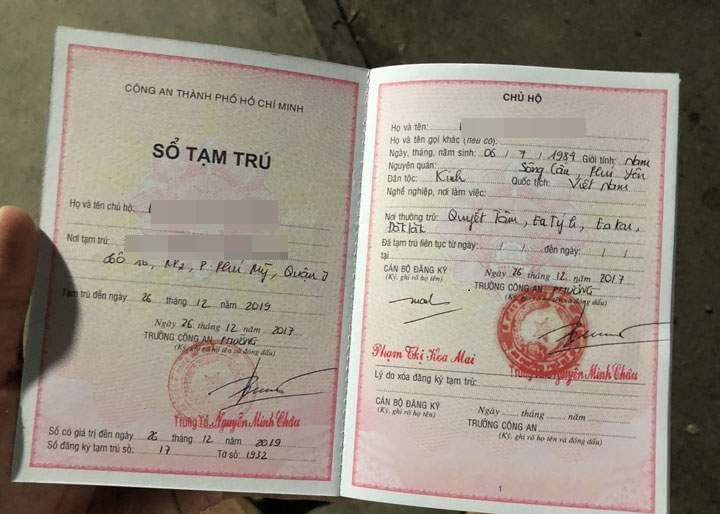 CÔNG AN THÀNH PHỐ HỒ CHÍ MINH
SỔ TẠM TRÚ
Họ và tên chủ hộ:
Nơi tạm trú:
P. Phú Mỹ, Quận 7
Tạm trú đến ngày 26 tháng 12 năm 2019
Ngày 26 tháng 12 năm 2017
TRƯỞNG CÔNG AN PHƯỜNG
(Ký, ghi rõ họ tên và đóng dấu)
Trung Tá Nguyễn Minh Châu
Sổ có giá trị đến ngày 26 tháng 12 năm 2019
Số đăng ký tạm trú số: 17 Tờ số: 1932
CHỦ HỘ
Họ và tên:
Họ và tên gọi khác (nếu có):
Ngày, tháng, năm sinh: 06 / 7 / 1984 Giới tính: Nam
Nguyên quán: Sông Cầu, Phú Yên
Dân tộc: Kinh Quốc tịch: Việt Nam
Nghề nghiệp, nơi làm việc:
Nơi thường trú: Quyết Tâm, Ea Tý h, Ea Kar,
Đắk Lắk
Đã tạm trú liên tục từ ngày: / / đến ngày: / /
tại
Ngày 26 tháng 12 năm 2017
CÁN BỘ ĐĂNG KÝ TRƯỞNG CÔNG AN PHƯỜNG
(Ký, ghi rõ họ tên) (Ký, ghi rõ họ tên và đóng dấu)
Phạm Thị Hoa Mai Trung Tá Nguyễn Minh Châu
Lý do xóa đăng ký tạm trú:
Ngày tháng năm
CÁN BỘ ĐĂNG KÝ TRƯỞNG CÔNG AN
(Ký, ghi rõ họ tên) (Ký, ghi rõ họ tên và đóng dấu)
1